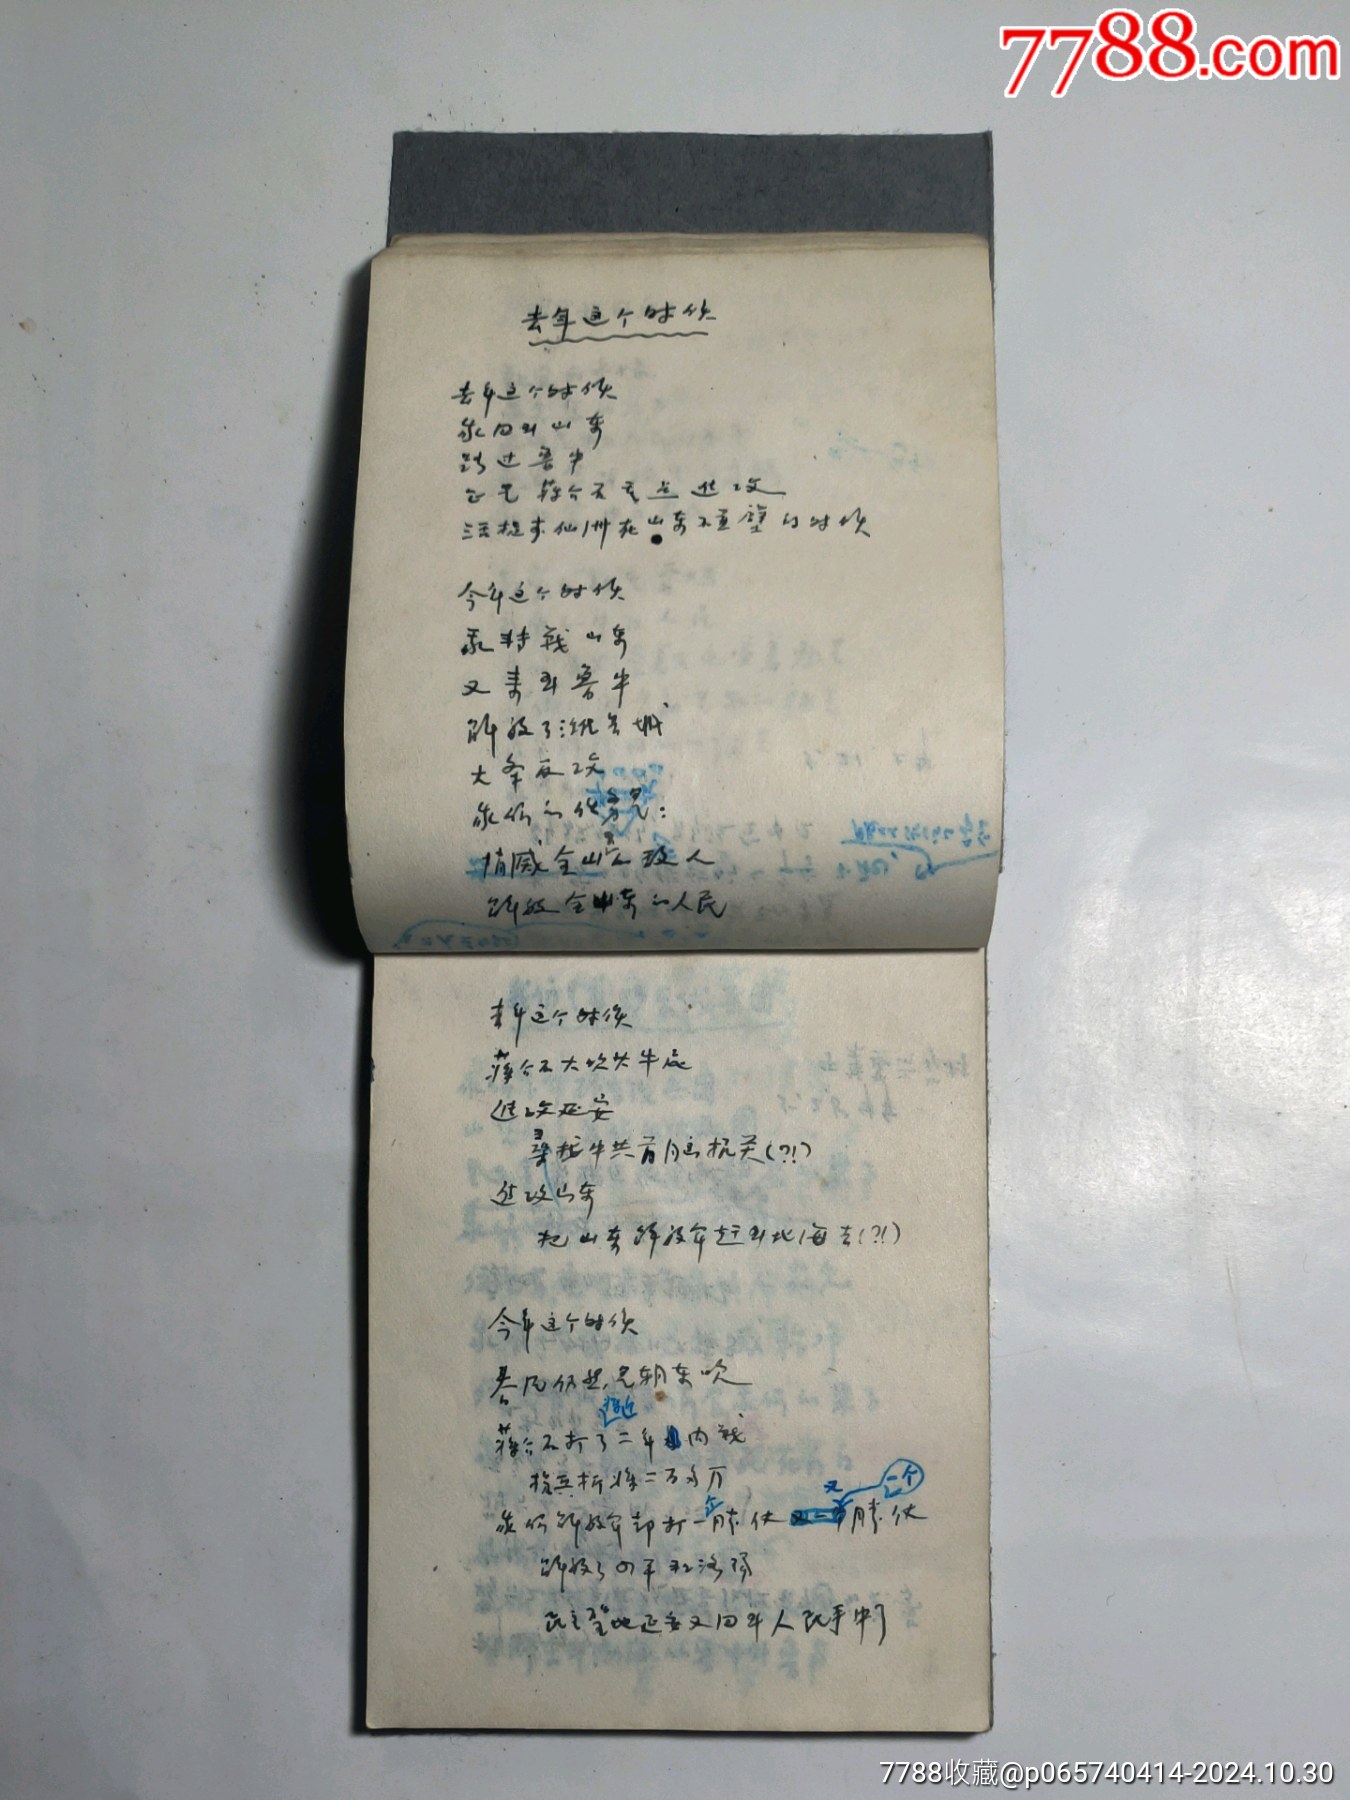 7788.com
去年这个时候
去年这个时候
我回到山东
路过鲁中
正是蒋介石重点进攻
活捉李仙洲在山东的时候
今年这个时候
我转战山东
又来到鲁中
解放了潍县城
大军反攻
我们的任务是:
消灭全山东敌人
解放全山东的人民
去年这个时候
蒋介石大吹其牛皮
进攻延安
中共首脑机关(?!)
进攻山东
把山东解放军赶到北海去(?!)
今年这个时候
春风仍然是朝东吹
蒋介石打了
接近
二年内战
损兵折将二百多万
我们解放军却打一个胜仗又一个胜仗
解放了四平和洛阳
民主圣地延安又回到人民手中了
7788收藏@p065740414-2024.10.30